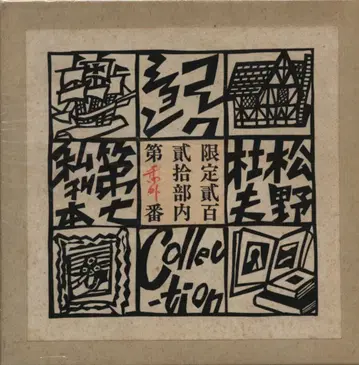 コレク
ション
松野
杜夫
限定貳百
貳拾部内
第 番
第七
私刊本
Collec
-tion